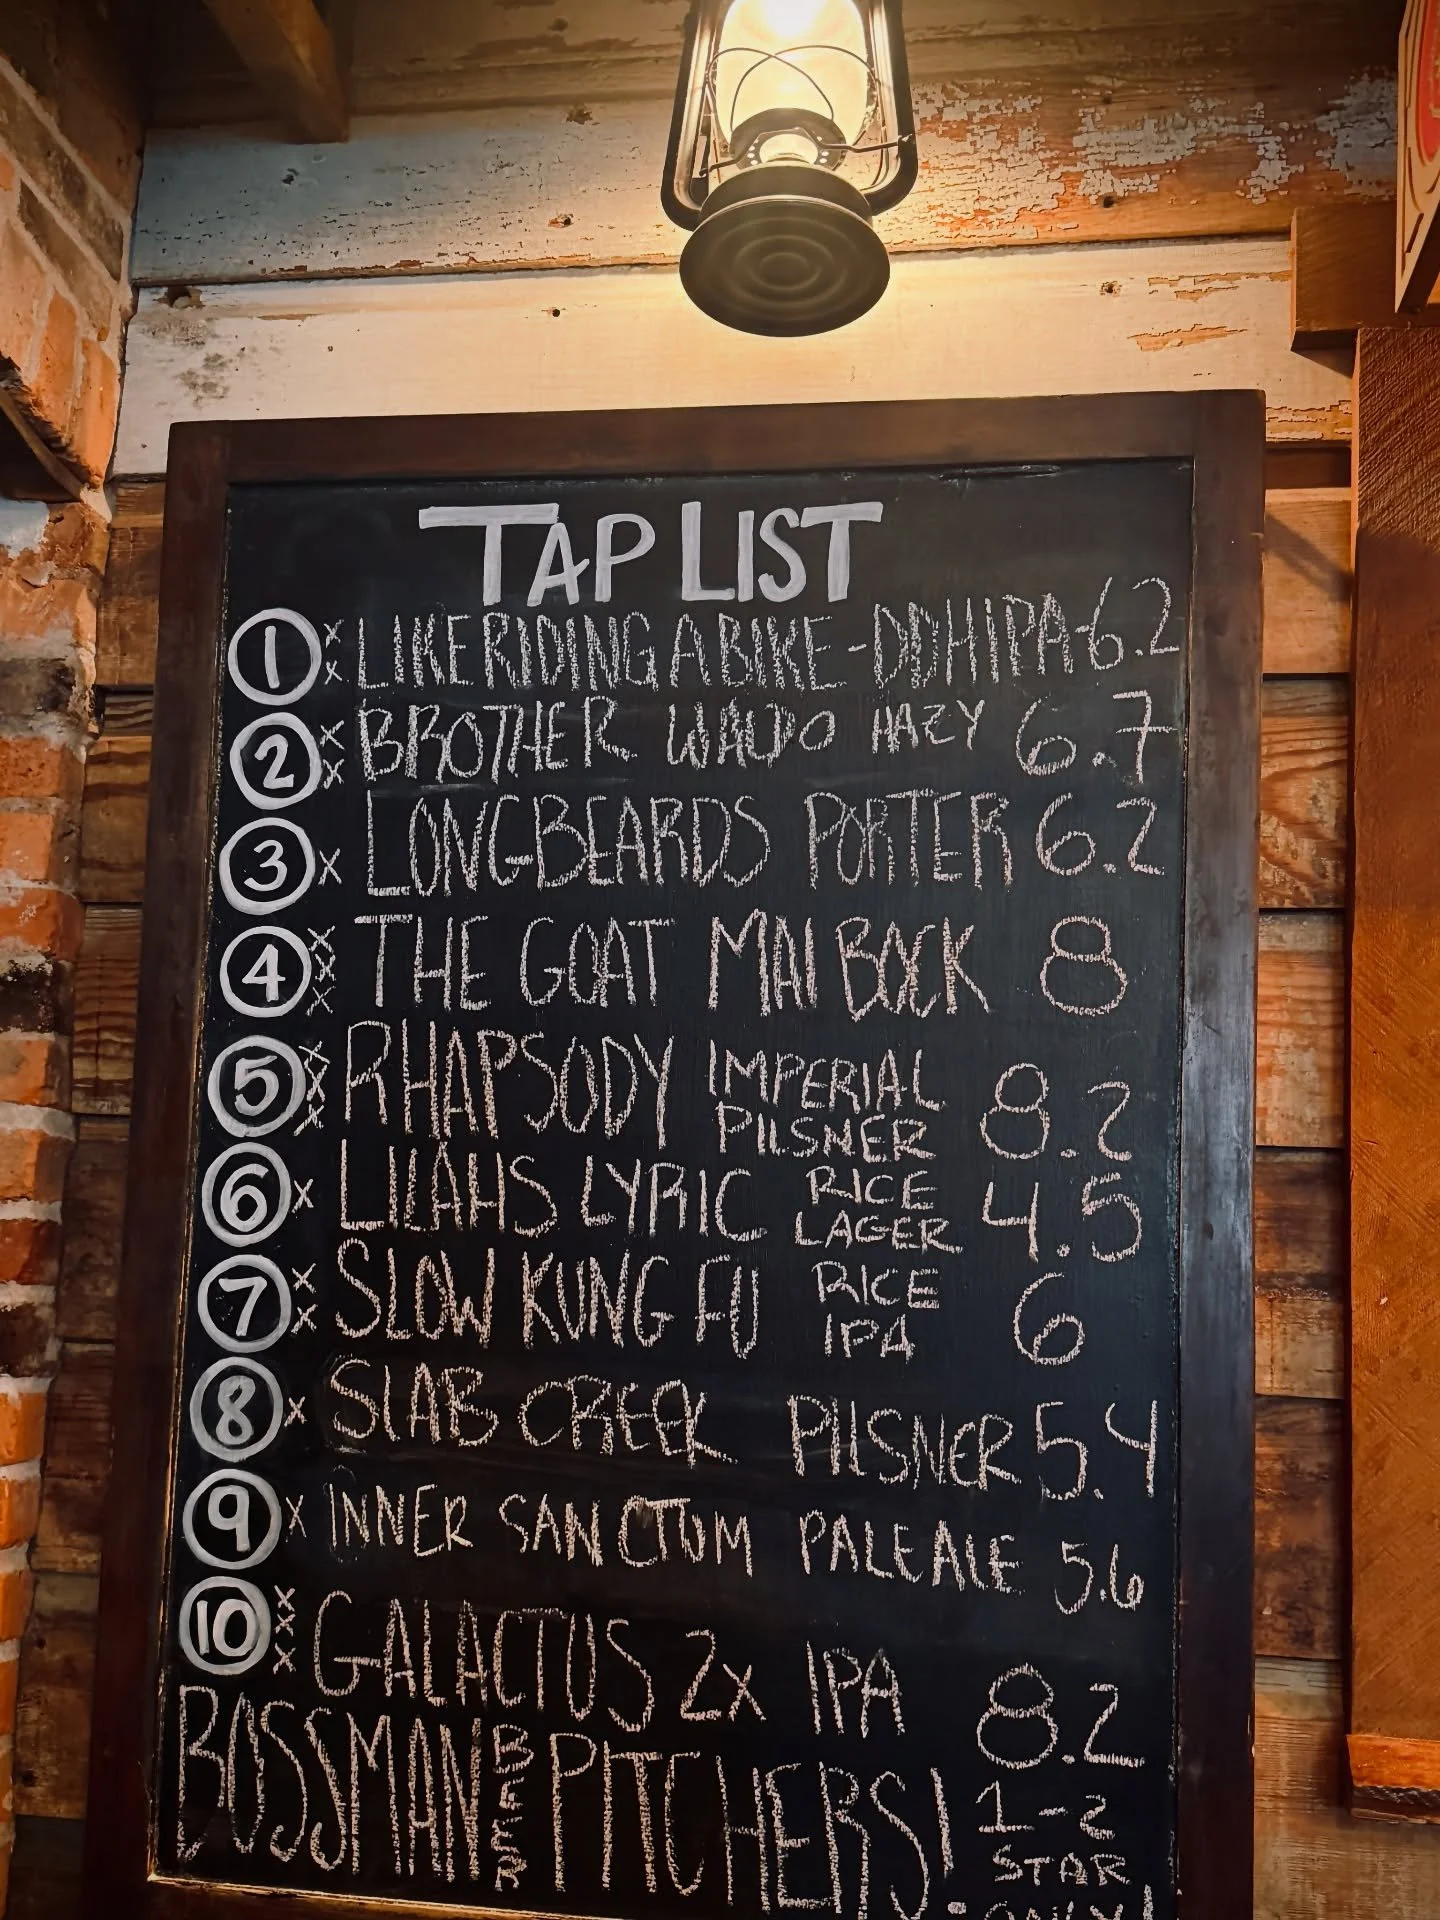 TAP LIST
1 XX LIKE RIDING A BIKE - DDH IPA - 6.2
2 XX BROTHER WALDO HAZY 6.7
3 X LONGBEARDS PORTER 6.2
4 XXX THE GOAT MAIBOCK 8
5 XXX RHAPSODY IMPERIAL PILSNER 8.2
6 X LILAHS LYRIC RICE LAGER 4.5
7 XX SLOW KUNG FU RICE IPA 6
8 X SLAB CREEK PILSNER 5.4
9 X INNER SANCTUM PALE ALE 5.6
10 XXX GALACTUS 2X IPA 8.2
BOSSMAN BEER PITCHERS! 1-2 STAR ONLY!